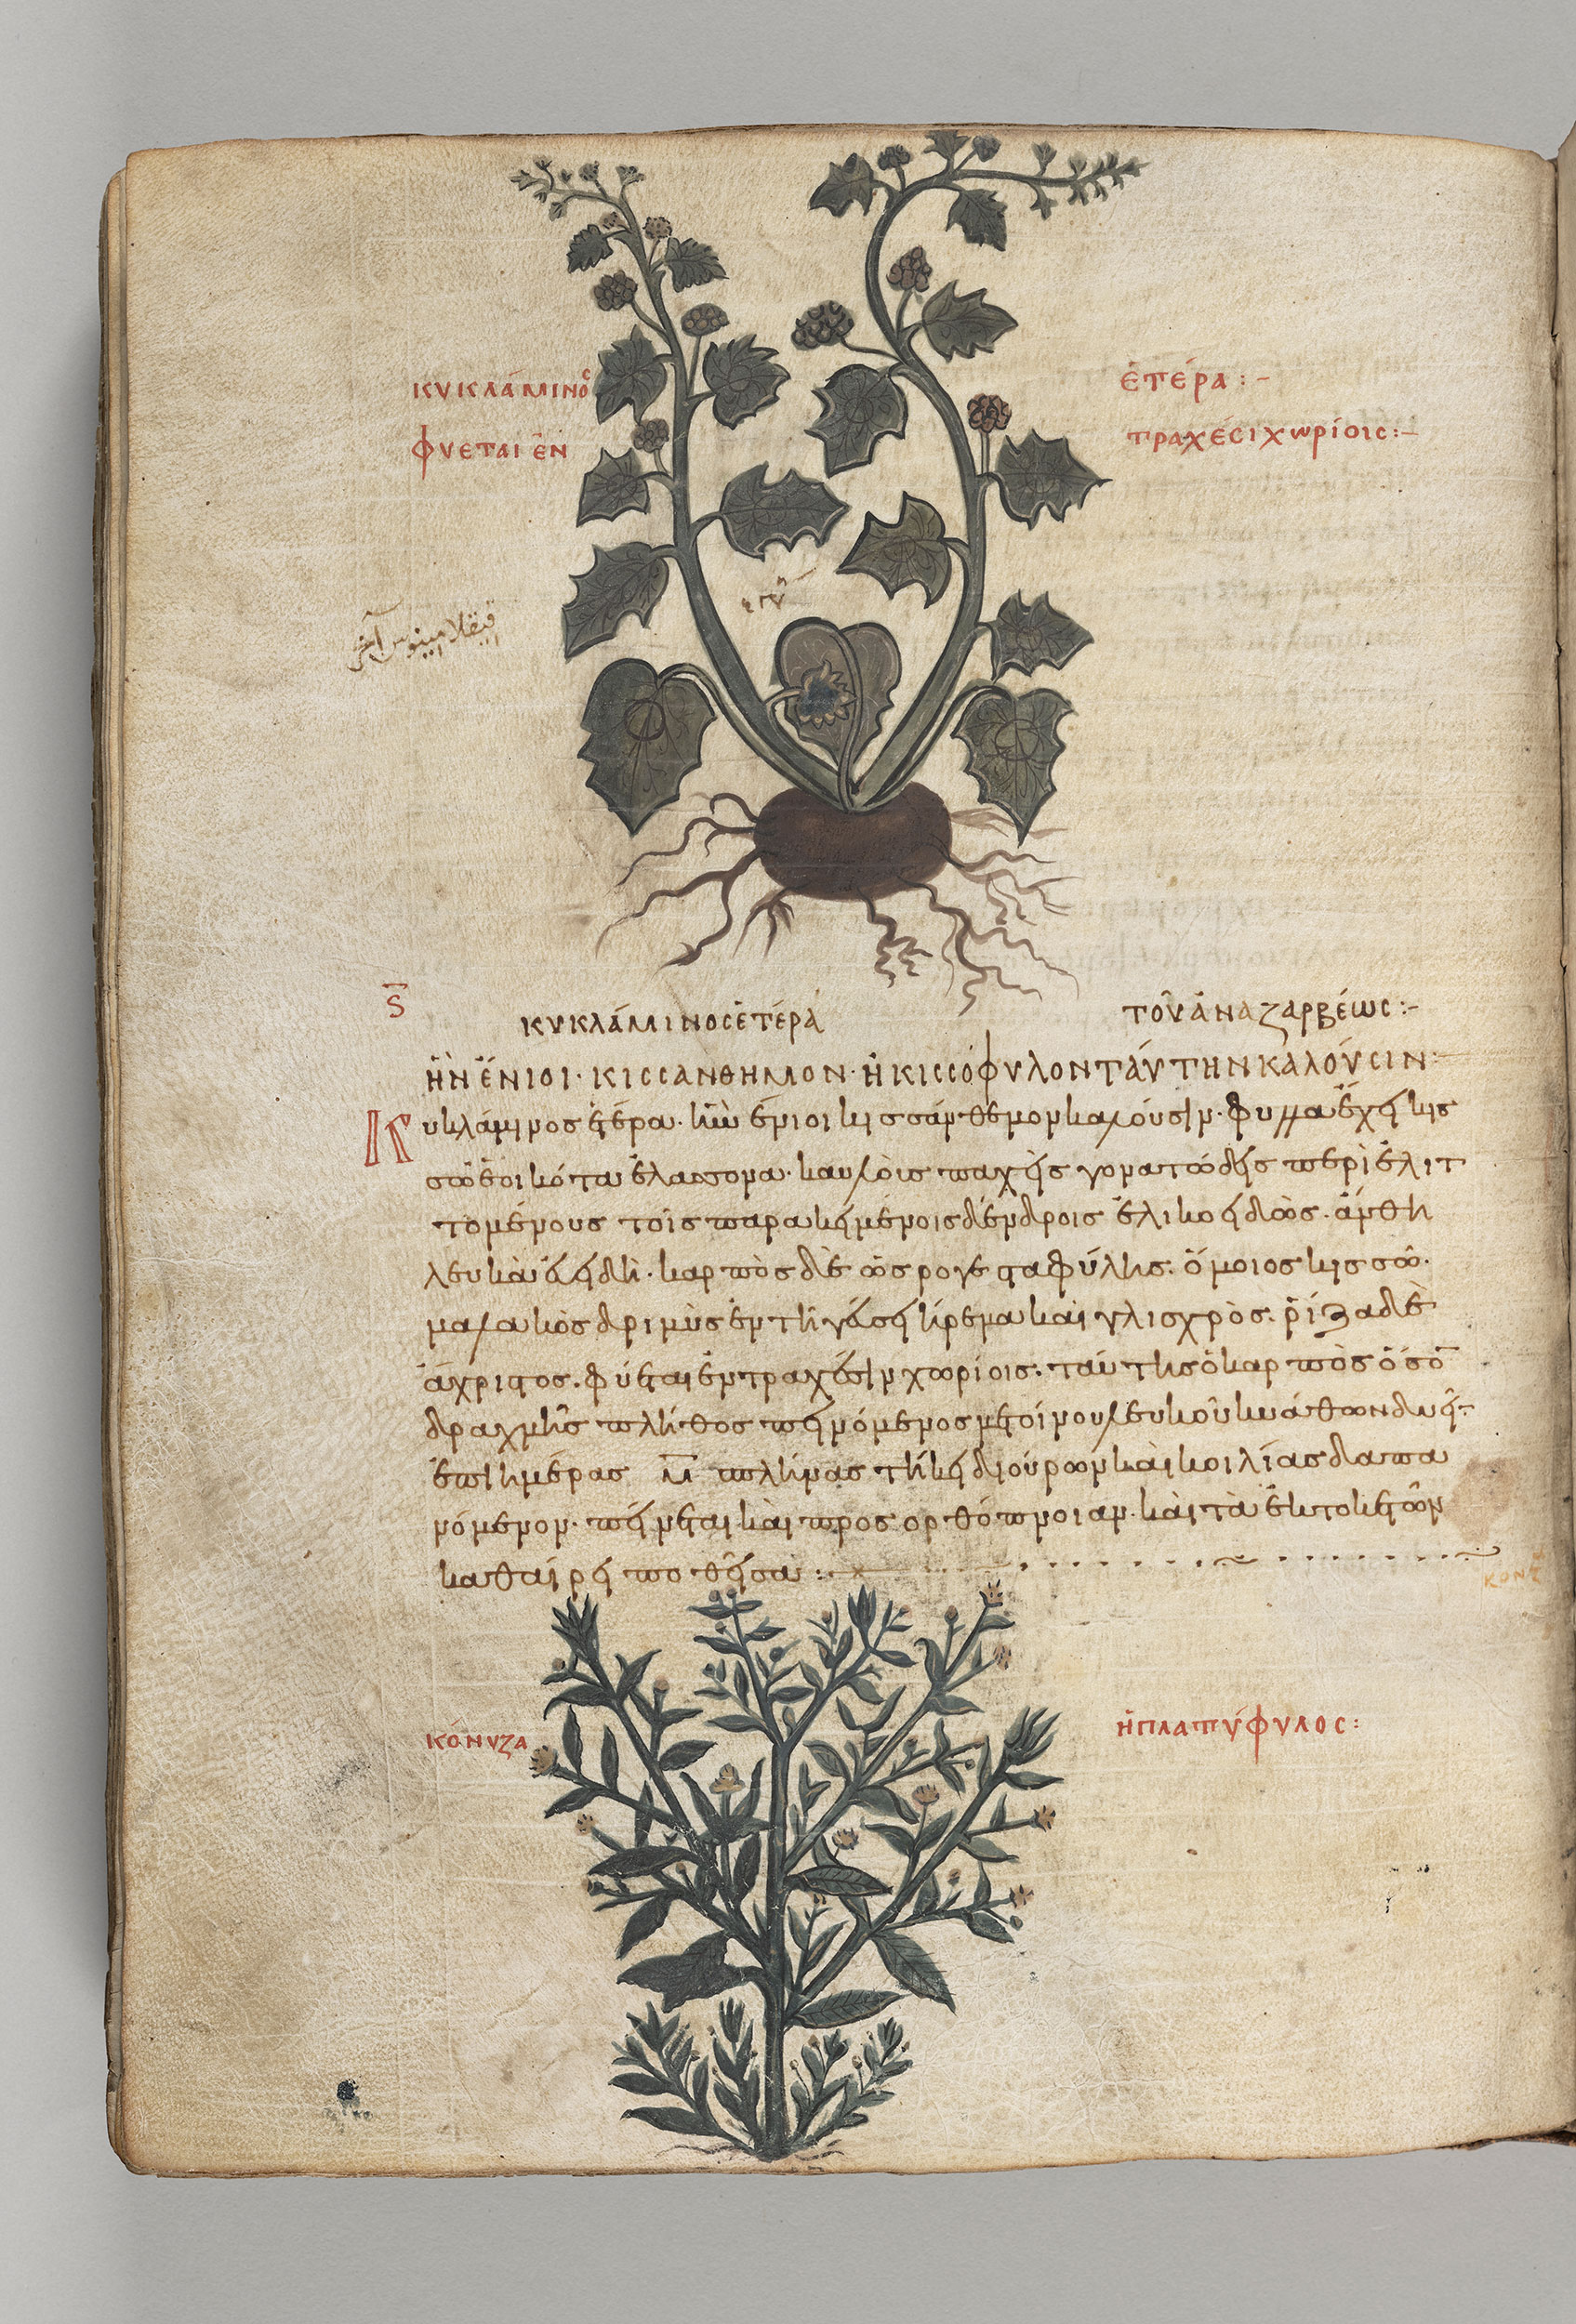 κυκλάμινος ἑτέρα :-
φύεται ἐν τραχέσι χωρίοις :-
قيقلامينوس آخر
ς
κυκλάμινος ἑτέρα τοῦ ἀναζαρβέως :-
ἣν ἔνιοι · κισσάνθημον · ἢ κισσόφυλον ταύτην καλοῦσιν :
Κυκλάμινος ἑτέρα · ἣν ἔνιοι κισσάνθεμον καλοῦσιν · φύλλα ἔχει κισ
σῷ ἐοικότα ἐλάσσονα · καυλοὺς παχεῖς γονατώδεις περιελιτ
τομένους τοῖς παρακειμένοις δένδροις ἑλικοειδῶς · ἄνθη
λευκὰ εὐειδῆ · καρπὸς δὲ ὡς ρογὲ σταφύλης · ὅμοιος κισσῷ ·
μαλακὸς δριμὺς ἐν τῇ γεύσει ἠρέμα καὶ γλισχρός · ῥίζα δὲ
ἄχριστος · φύεται ἐν τραχέσιν χωρίοις · ταύτης ὁ καρπὸς ὅσον
δραχμῆς πλῆθος πεινόμενος μετ οίνου λευκοῦ κυάθων δυεῖν
ἐπὶ ἡμέρας μ πλήνας τήκει δι οὔρων καὶ κοιλίας δαπα
νόμενον · πείνεται καὶ προς ορθόπνοιαν · καὶ τὰ ἐκ τοκετῶν
καθαίρει ποθεῖσα :
κόνυζα ἡ πλατύφυλος :